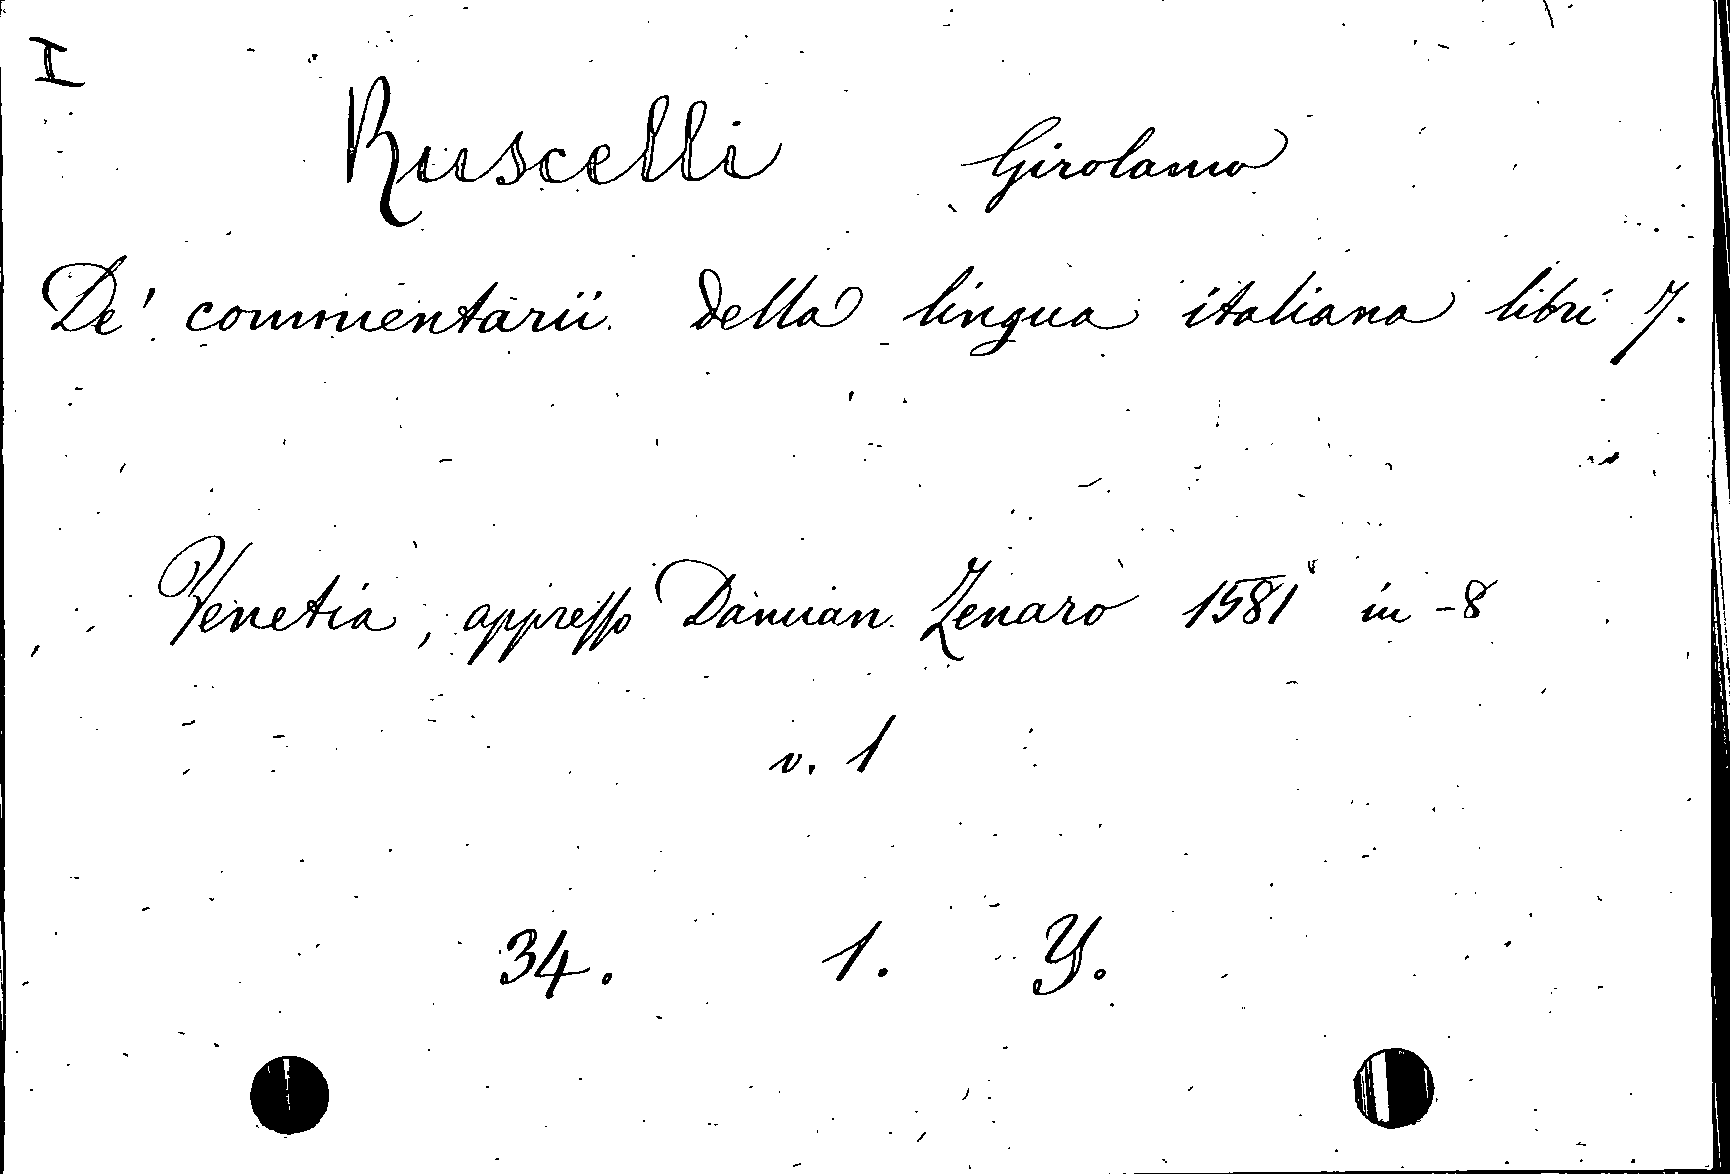 I
Ruscelli Girolamo
De' commentarii della lingua italiana libri 7.
Venetia, appresso Damian Zenaro 1581 in-8
v. 1
34. 1. Y.